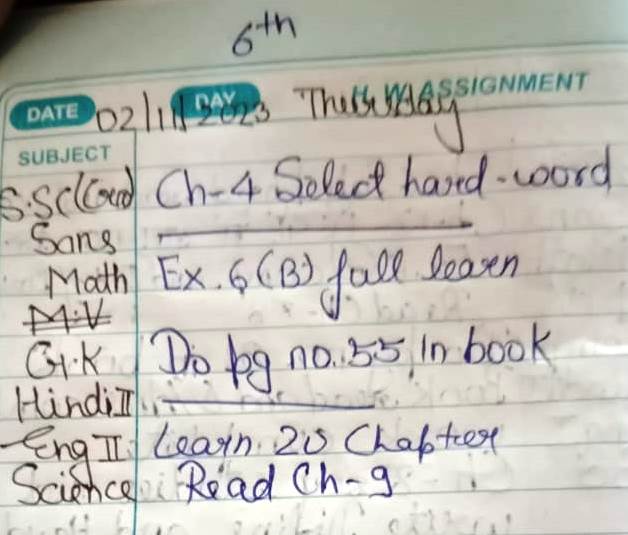 6th
DATE 02/11/2023 DAY Thursday H.W/ASSIGNMENT
SUBJECT
S.Sc Ch-4 Select hard-word
Sans
Math Ex. 6 (B) full learn
M.V
G.K Do pg no. 55 in book
Hindi II
Eng II Learn 20 Chapter
Science Read Ch-9